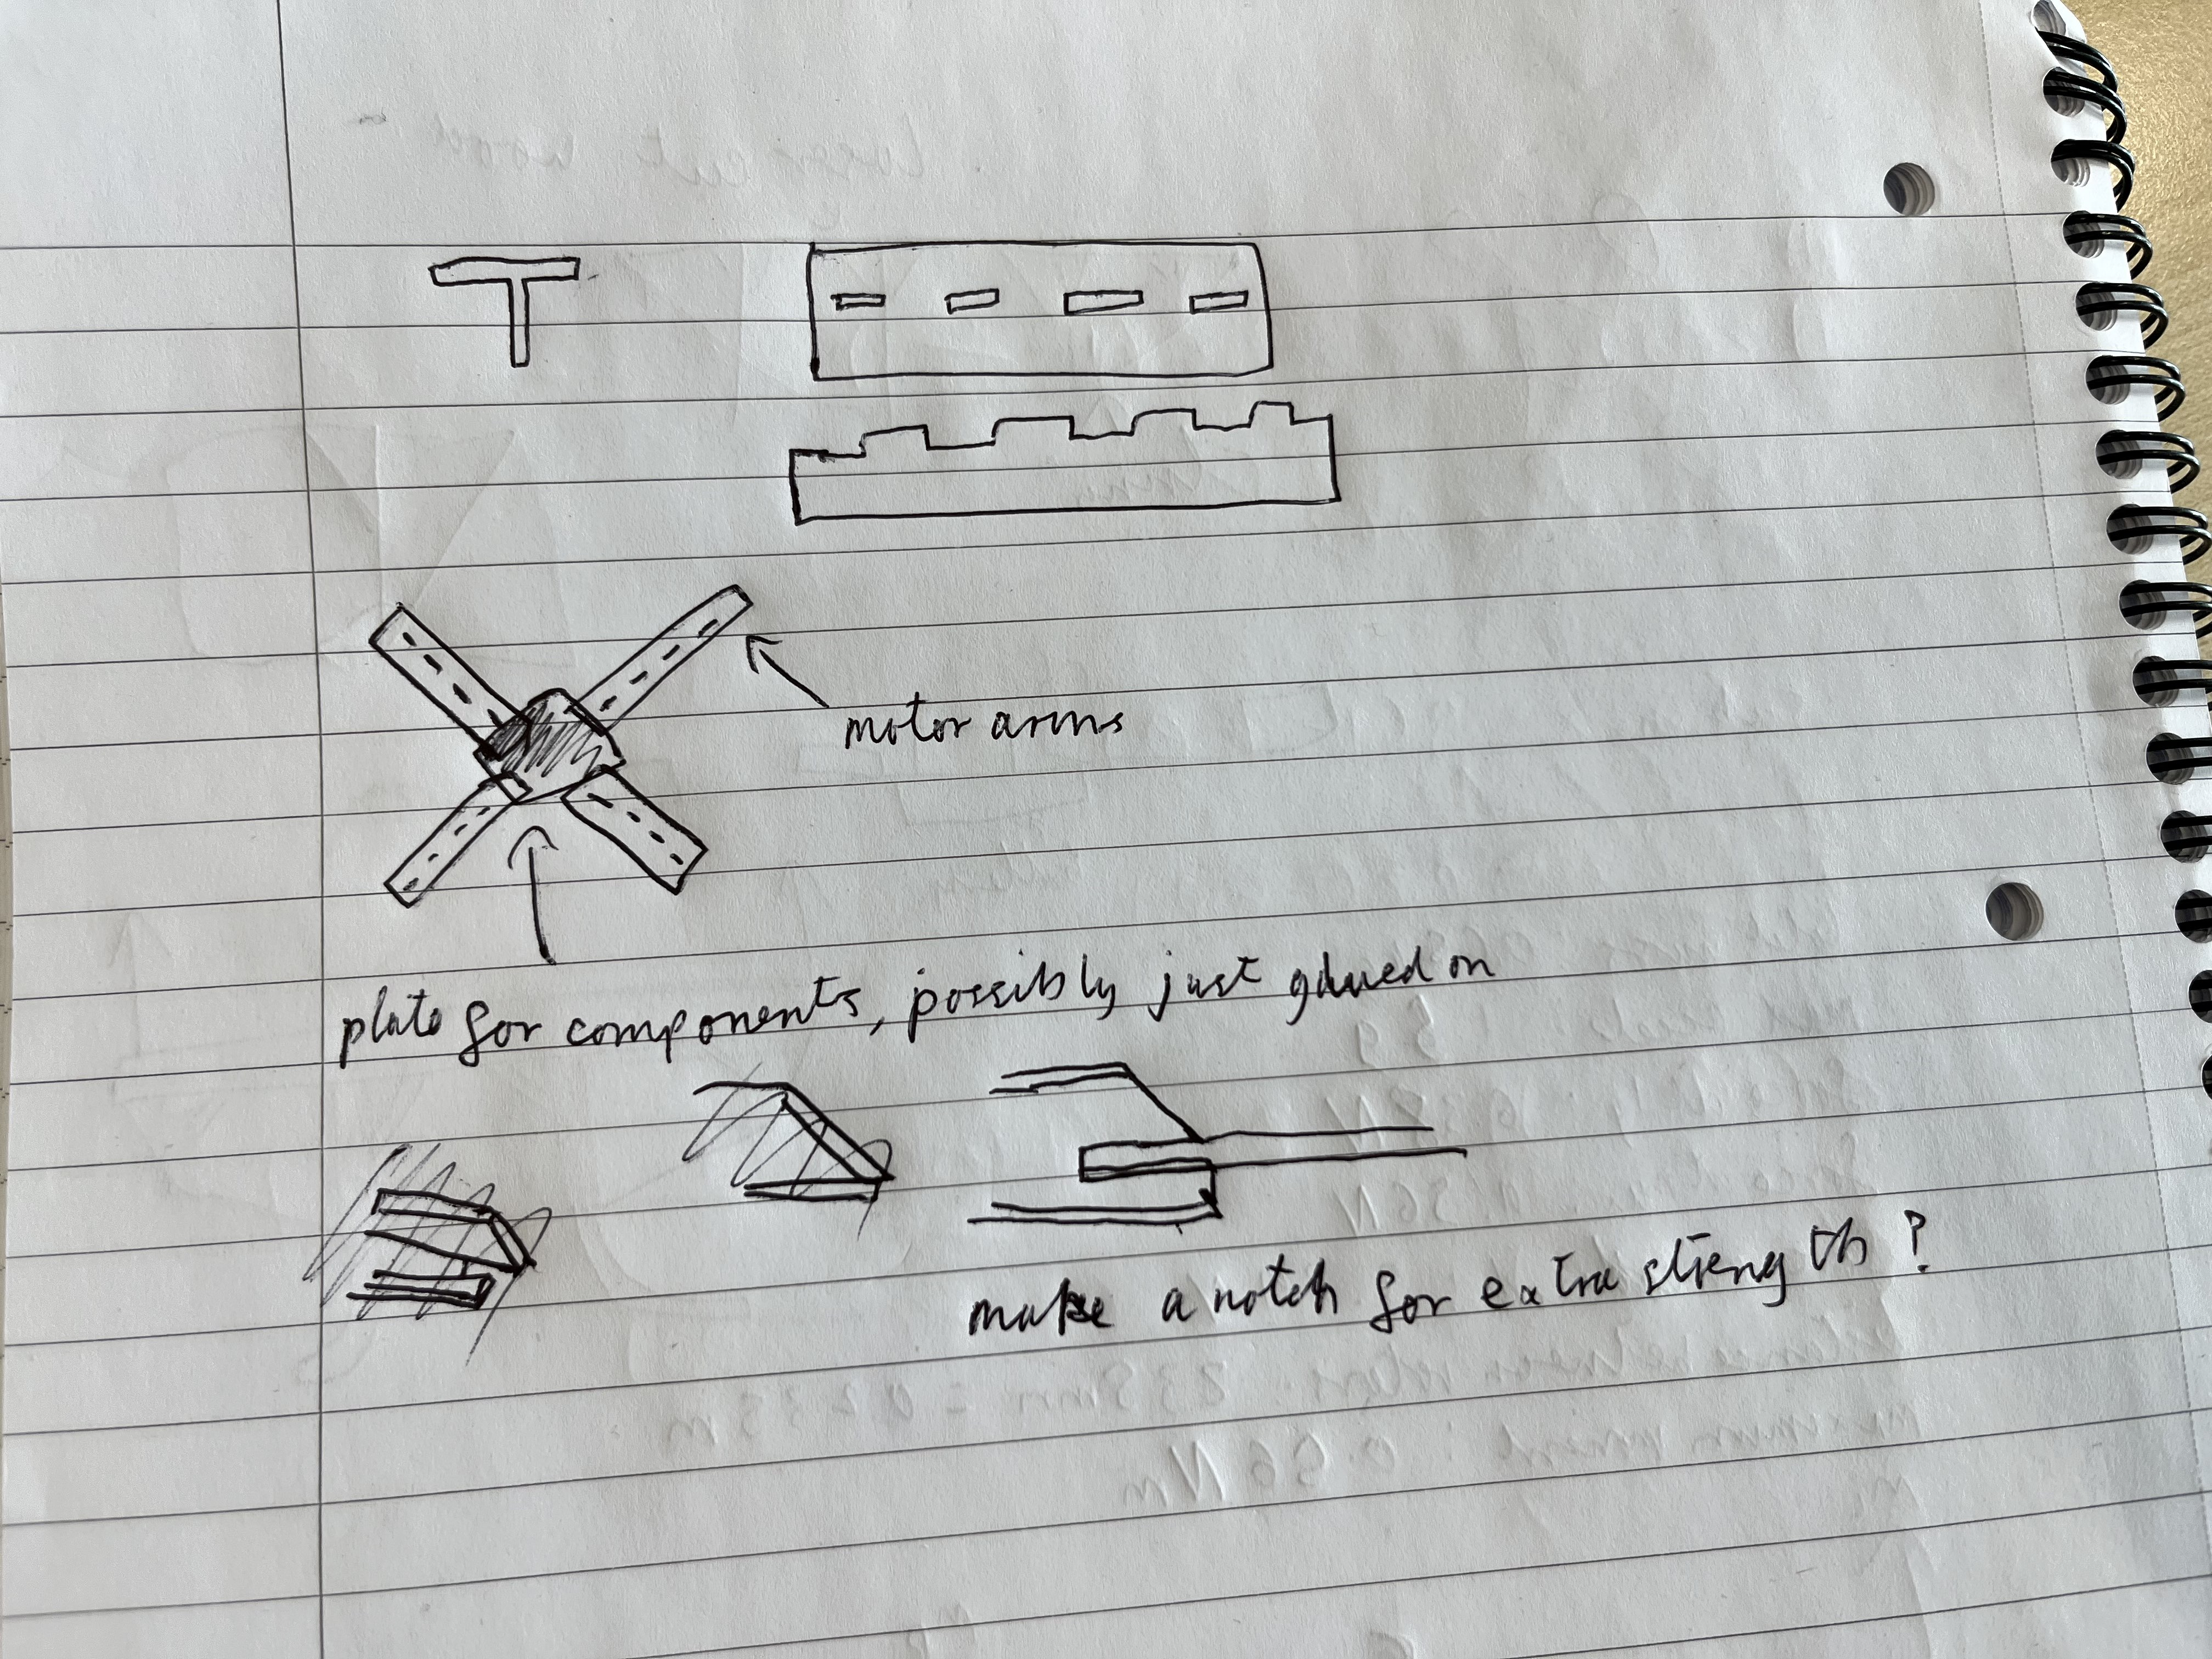 motor arms
plate for components, possibly just glued on
make a notch for extra strength?